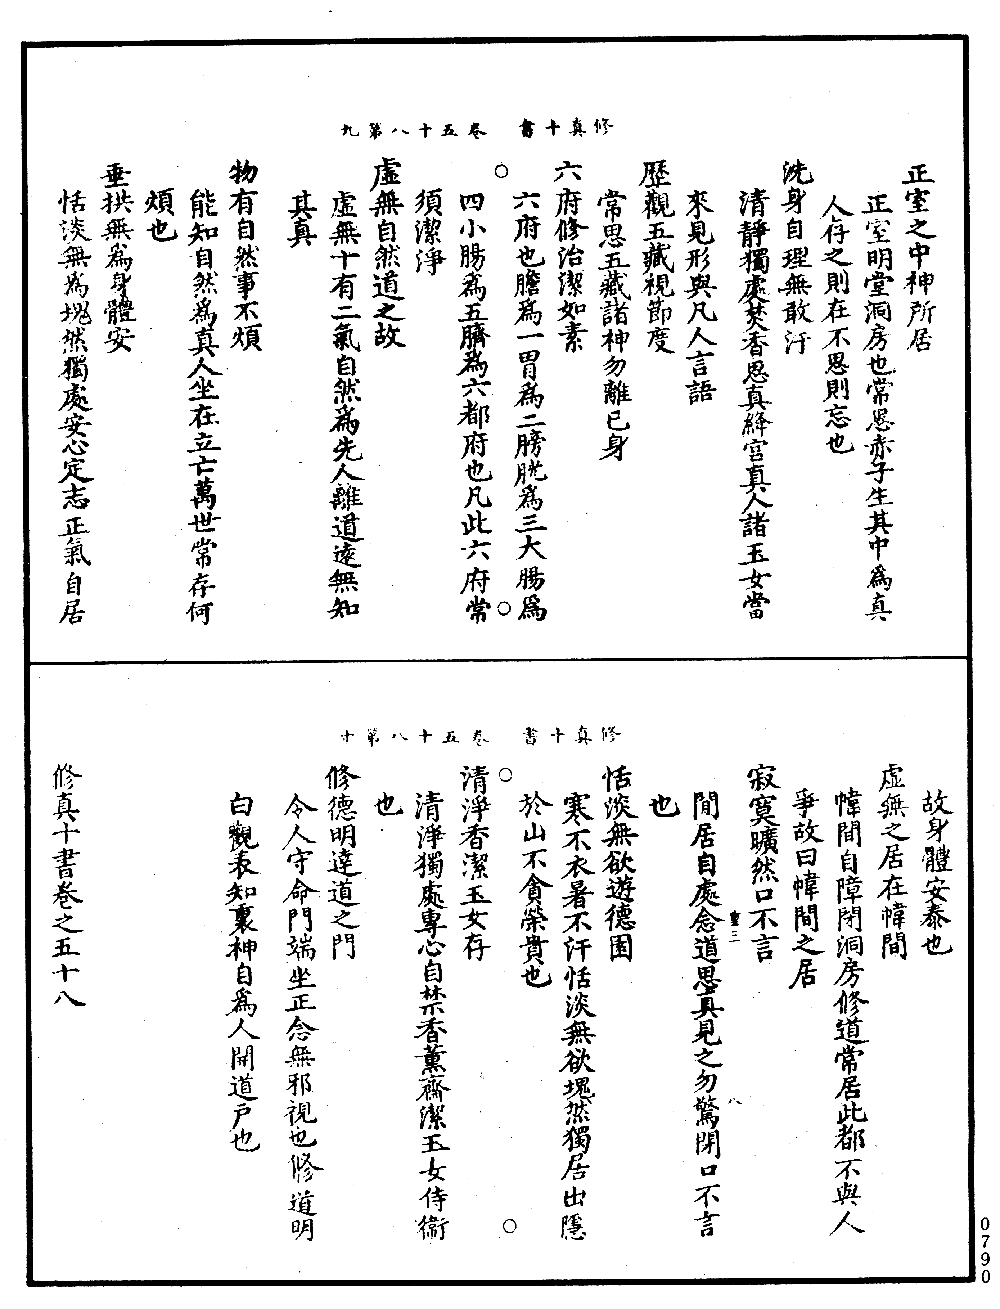 修真十書　卷五十八第九
正室之中神所居
正室明堂洞房也常思赤子生其中為真
人存之則在不思則忘也
洗身自理無敢汙
清靜獨處焚香思真絳宮真人諸玉女當
來見形與凡人言語
歷觀五藏視節度
常思五藏諸神勿離已身
六府修治潔如素
六府也膽為一胃為二膀胱為三大腸為
四小腸為五臍為六都府也凡此六府常
須潔淨
虛無自然道之故
虛無十有二氣自然為先人離道遠無知
其真
物有自然事不煩
能知自然為真人坐在立亡萬世常存何
煩也
垂拱無為身體安
恬淡無為塊然獨處安心定志正氣自居
修真十書　卷五十八第十
故身體安泰也
虛無之居在幃間
幃間自障閉洞房修道常居此都不與人
爭故曰幃間之居
寂寞曠然口不言
間居自處念道思真見之勿驚閉口不言
也
恬淡無欲遊德園
寒不衣暑不汗恬淡無欲塊然獨居出隱
於山不貪榮貴也
清淨香潔玉女存
清淨獨處專心自禁香薰齋潔玉女侍衛
也
修德明達道之門
令人守命門端坐正念無邪視也修道明
白觀表知裏神自為人開道戶也
修真十書卷之五十八
0790